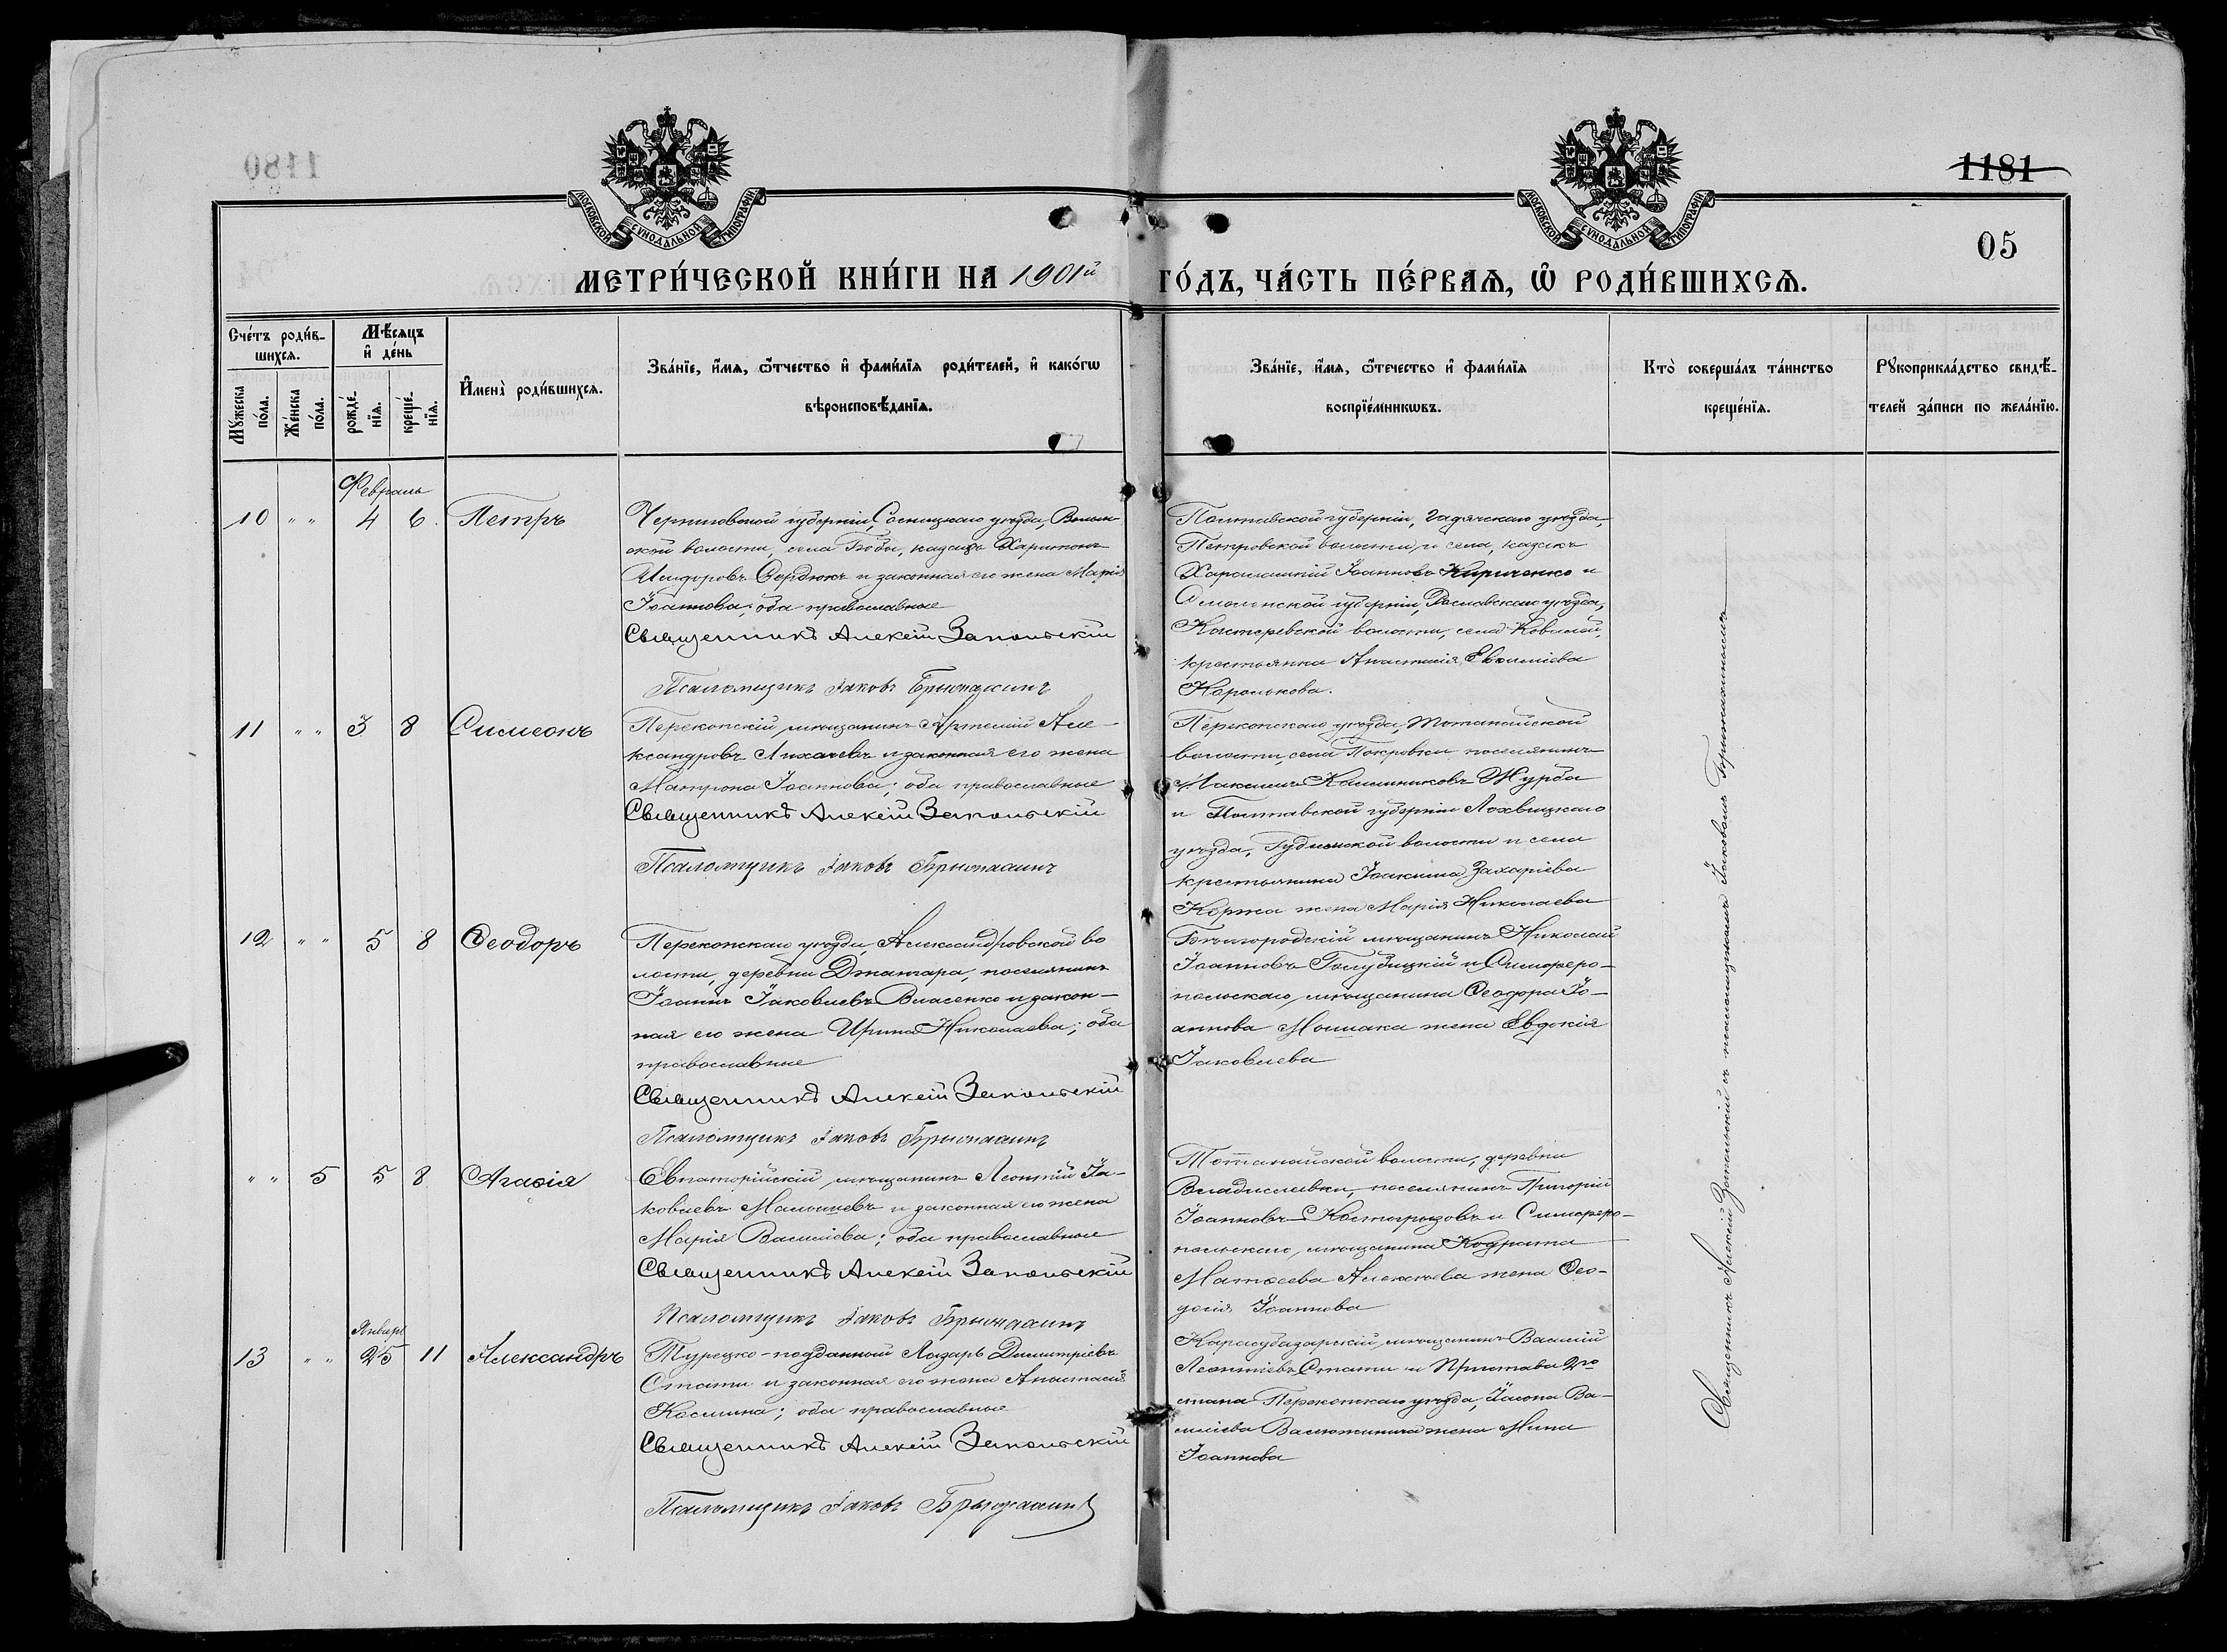 1181
05
МОСКОВСКОЙ СѴНОДАЛЬНОЙ ТИПОГРАФІИ
МОСКОВСКОЙ СѴНОДАЛЬНОЙ ТИПОГРАФІИ
МЕТРИ́ЧЕСКОЙ КНИ́ГИ НА 1901й ГО́ДЪ, ЧА́СТЬ ПЕ́РВАѦ, Ѡ҆ РОДИ́ВШИХСѦ.
Сче́тъ роди́в-
шихсѧ.
Мꙋ́жеска
по́ла.
Же́нска
по́ла.
Мѣ́сяцъ
и҆ де́нь
рожде́-
нїѧ.
креще́-
нїѧ.
И҆мена̀ роди́вшихсѧ.
Зва́нїе, и҆́мѧ, ѻ҆́тчество и҆ фами́лїѧ роди́телей, и҆ како́гѡ
вѣроисповѣ́данїѧ.
Зва́нїе, и҆́мѧ, ѻ҆́течество и҆ фами́лїѧ
воспрїе́мникѡвъ.
Кто̀ соверша́лъ та́инство
креще́нїѧ.
Рꙋкоприкла́дство свидѣ́-
телей за́писи по жела́нїю.
Февраль
10 " " 4 6. Петръ
Черниговской губерніи, Сосницкаго уѣзда, Волын-
ской волости, села Бобы, казакъ Харитонъ
Исидоровъ Сердюкъ и законная его жена Марія
Іоаннова; оба православные
Священникъ Алексій Запольскій
Псаломщикъ Іаковъ
Полтавской губерніи, Гадячскаго уѣзда,
Петровской волости и села, казакъ
Харалампій Іоанновъ Кириченко и
Смоленской губерніи, Рославскаго уѣзда,
Костыревской волости, села
крестьянка Анастасія Евѳиміева
Королькова.
11 " " 3 8 Симеонъ
Перекопскій мѣщанинъ Артемій Але-
ксандровъ Лихачевъ и законная его жена
Матрона Іоаннова; оба православные
Священникъ Алексій Запольскій
Псаломщикъ Іаковъ
Перекопскаго уѣзда, Тотанайской
волости, села Покровки поселянинъ
Максимъ Калинниковъ Журба
и Полтавской губерніи Лохвицкаго
уѣзда, волости и села
крестьянина Іоакима Захаріева
Коржа жена Марія Николаева
12 " " 5 8 Ѳеодоръ
Перекопскаго уѣзда, Александровской во
лости, деревни Джантара, поселянинъ
Іоаннъ Іаковлевъ Власенко и закон-
ная его жена Ирина Николаева; оба
православные
Священникъ Алексій Запольскій
Псаломщикъ Іаковъ
Бѣлгородскій мѣщанинъ Николай
Іоанновъ Голубицкій и Симферо-
польскаго мѣщанина Ѳеодора Іо-
аннова жена Евдокія
Іаковлева
" " 5 5 8 Агаѳія
Евпаторійскій мѣщанинъ Леонтій Іа-
ковлевъ Малышевъ и законная его жена
Марія Василіева; оба православные
Священникъ Алексій Запольскій
Псаломщикъ Іаковъ
Тотанайской волости, деревни
Владиславки, поселянинъ Григорій
Іоанновъ Костогрызовъ и Симферо-
польскаго мѣщанина Кодрата
Матѳеева Алексѣева жена Ѳео-
досія Іоаннова
Январь
13 " " 25 11 Александръ
Турецко-подданный Лазарь Димитріевъ
Стати и законная его жена Анастасія
Космина; оба православные
Священникъ Алексій Запольскій
Псаломщикъ Іаковъ
Карасубазарскій мѣщанинъ Василій
Леонтіевъ Стати и Пристава 2го
стана Перекопскаго уѣзда, Іасона Ва-
силіева жена Нина
Іоаннова
Священникъ Алексій Запольскій съ псаломщикомъ Іаковомъ